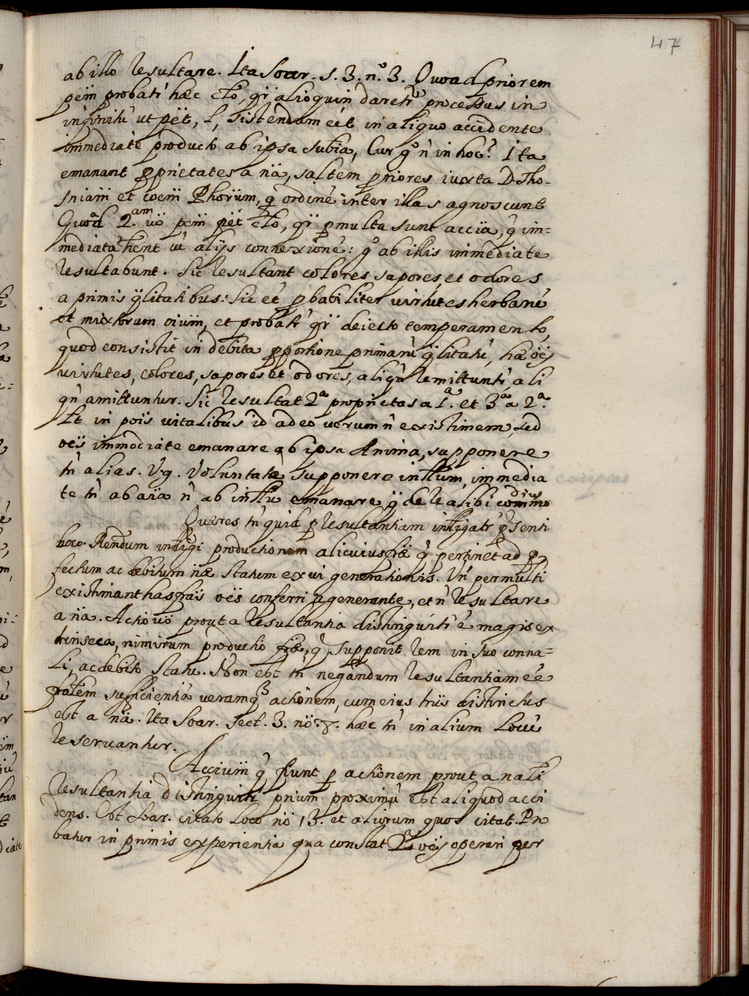 47
ab illo resultare. Ita Soar. s. 3. n.º 3. Quoad priorem
pẽm probatr̃ hæc cto, qr̃ alioquin daretr̃ processus in
infinitũ ut pẽt, l, sistendum eet in aliquo accidente
immediate producto ab ipsa subia, Cur gº ñ in hoc? Ita
emanant pprietates a nã, saltem priores iuxta D. Tho-
mam et coem Phorum, q ordinẽ inter illas agnoscunt.
Quoad 2.am uö pem pẽt cto, qr̃ pmulta sunt accia, q̃ im-
mediatã hent cũ alijs connexionẽ: gº ab illis immediate
resultabunt. Sic resultant colores sapores et odores
a primis qlitatibus: Sic et pbabiliter uirtutes herbarũ
et mixtorum oium, et probatr̃ qr̃ deiecto temperamento,
quod consistit in debita pportione primarũ qlitatũ, hæ oẽs
uirtutes, colores, sapores et odores, aliqñ remittuntr̃ ali
qñ amittuntur. Sic resultat 2ª proprietas a 1.ª et 3ª a 2ª.
Et in pois uitalibus id adeo uerum ñ existimem, sed
oẽs immediate emanare ab ipsa Anima, supponere
tñ alias. Vg. Voluntatẽ supponere intlum, immedia
te tñ ab aia ñ ab intlu emanare, q̃ de re alibi commo
dius
Quæres tñ quid p resultantiam intligatr̃ in psenti
loco. Rendum intligi productionem alicuius rei q̃ pertinet ad p
fectum ac debitum næ statum ex ui generationis. Vñ permulti
existimant has fras oẽs conferri a generante, et ñ resultare
a nã. Actio uö prout a resultantia distinguitr̃ ẽ magis ex
trinseca, nimirum productio rei, q̃ supponit rem in suo conna-
li, ac debito statu. Non ebt tñ negandum resultantiam eẽ
suficientia ueramq; actionem, cum eius triis distinctus
ebt a nã. Ita Soar. sect. 3. nö 7. hæc tñ in alium locũ
reseruantur.
Accium q̃ fiunt p actionem prout a nali
resultantia distinguitr̃ prium proximũ ebt aliquod acci
dens. Ebt Soar. citato loco nö 13. et aliorum quos citat. Pr
batur in primis experientia qua constat res oẽs operari per